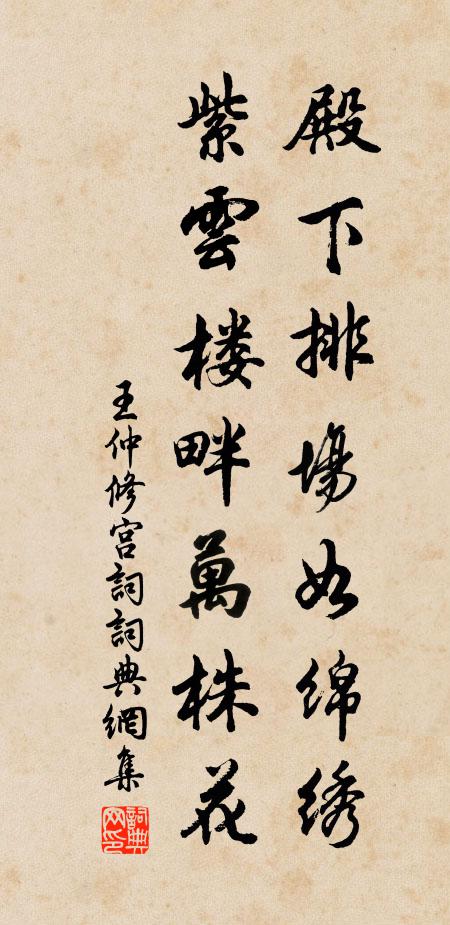 殿下排場如綿綉
紫雲楼畔萬株花
王仲修宫詞詞典網集
詞典網印